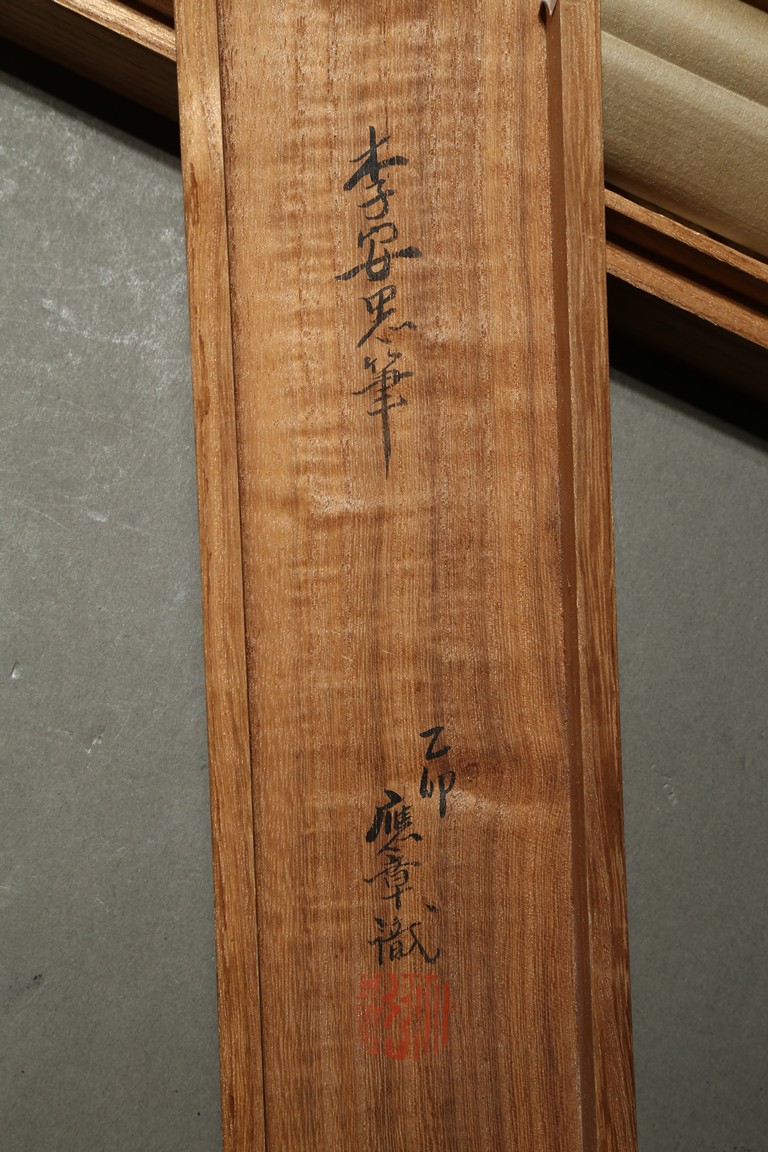 李安思筆
乙卯
應章識